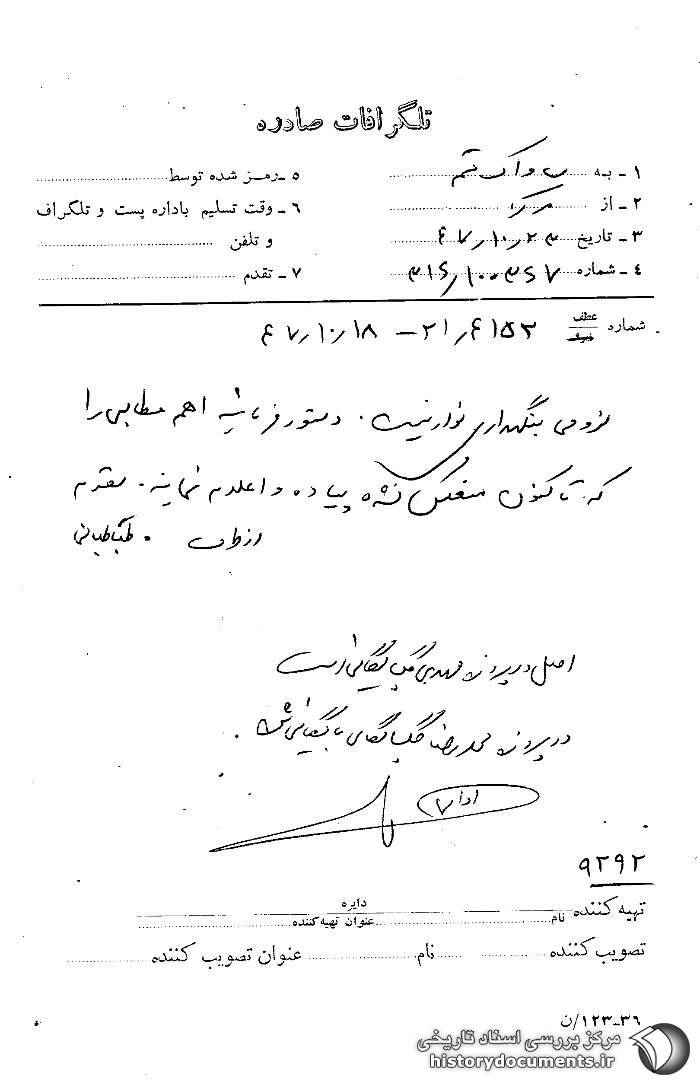 تلگرافات صادره
۱ـ به ساواک قم
۲ـ از مرکز
۳ـ تاریخ ۴۷٫۱۰٫۲۳
۴ـ شماره ۳۱۶٫۱۰۰۳۶۷
۵ـ رمز شده توسط
۶ـ وقت تسلیم باداره پست و تلگراف
و تلفن
۷ـ تقدم
شماره عطف پیرو ۲۱٫۶۱۵۲ – ۴۷٫۱۰٫۱۸
لزومی بنگهداری نوار نیست. دستور فرمائید اهم مطالبی را
که تا کنون منعکس نشده پیاده و اعلام نمایند. مقدم
از طرف . طباطبائی
اصل در پرونده مهدی گلپایگانی است
در پرونده محمدرضا گلپایگانی بایگانی شد.
۹۲۹۲
تهیه کننده نام عنوان تهیه کننده دایره
تصویب کننده نام عنوان تصویب کننده
۳۶ـ۱۲۳/ن
مرکز بررسی اسناد تاریخی
historydocuments.ir